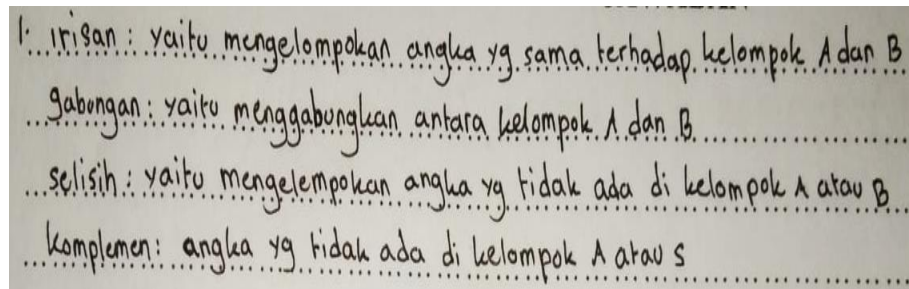 1. irisan : yaitu mengelompokan angka yg sama terhadap kelompok A dan B
gabungan : yaitu menggabungkan antara kelompok A dan B
selisih : yaitu mengelempokan angka yg tidak ada di kelompok A atau B
Komplemen : angka yg tidak ada di kelompok A atau S